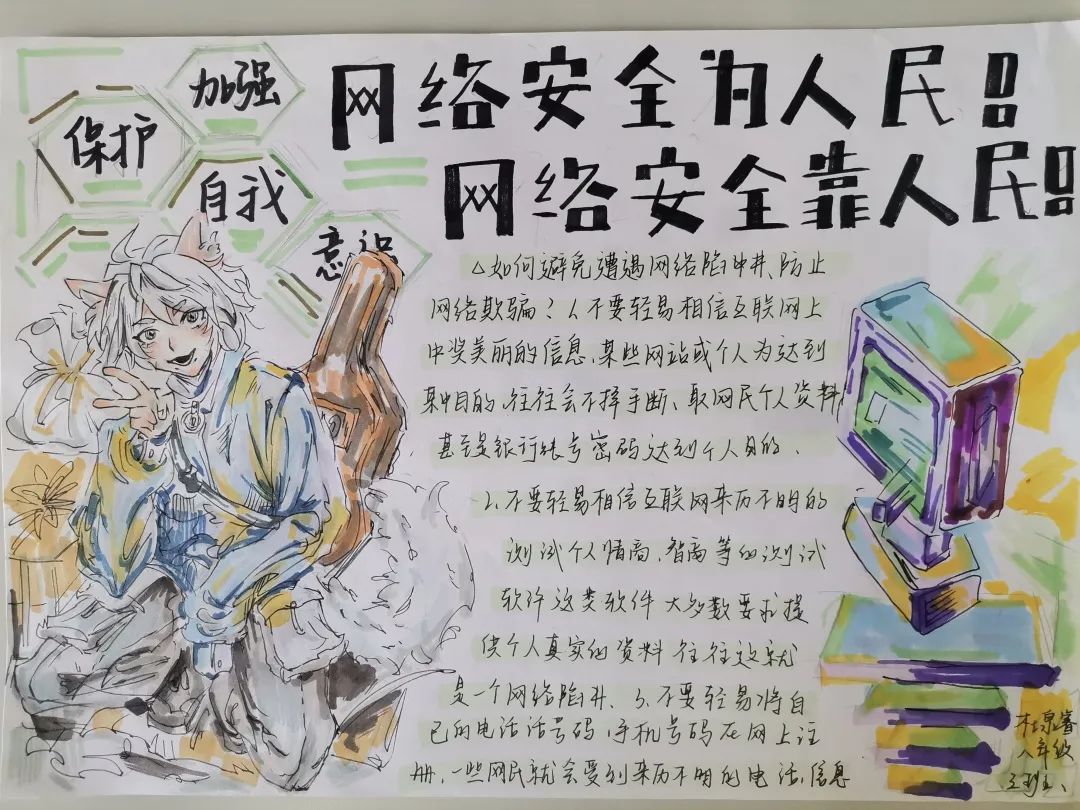 加强
保护
自我
意识
网络安全为人民!
网络安全靠人民!
△如何避免遭遇网络陷井、防止
网络欺骗？1、不要轻易相信互联网上
中奖美丽的信息、某些网站或个人为达到
某种目的、往往会不择手断、取网民个人资料,
甚至是银行帐号密码达到个人目的、
2、不要轻易相信互联网来历不明的
测试个人情商、智商等的测试
软件这类软件大多数要求提
供个人真实的资料往往这就
是一个网络陷井、3、不要轻易将自
己的电话话号码、手机号码在网上注
册、一些网民就会受到来历不明的电话、信息
八年级